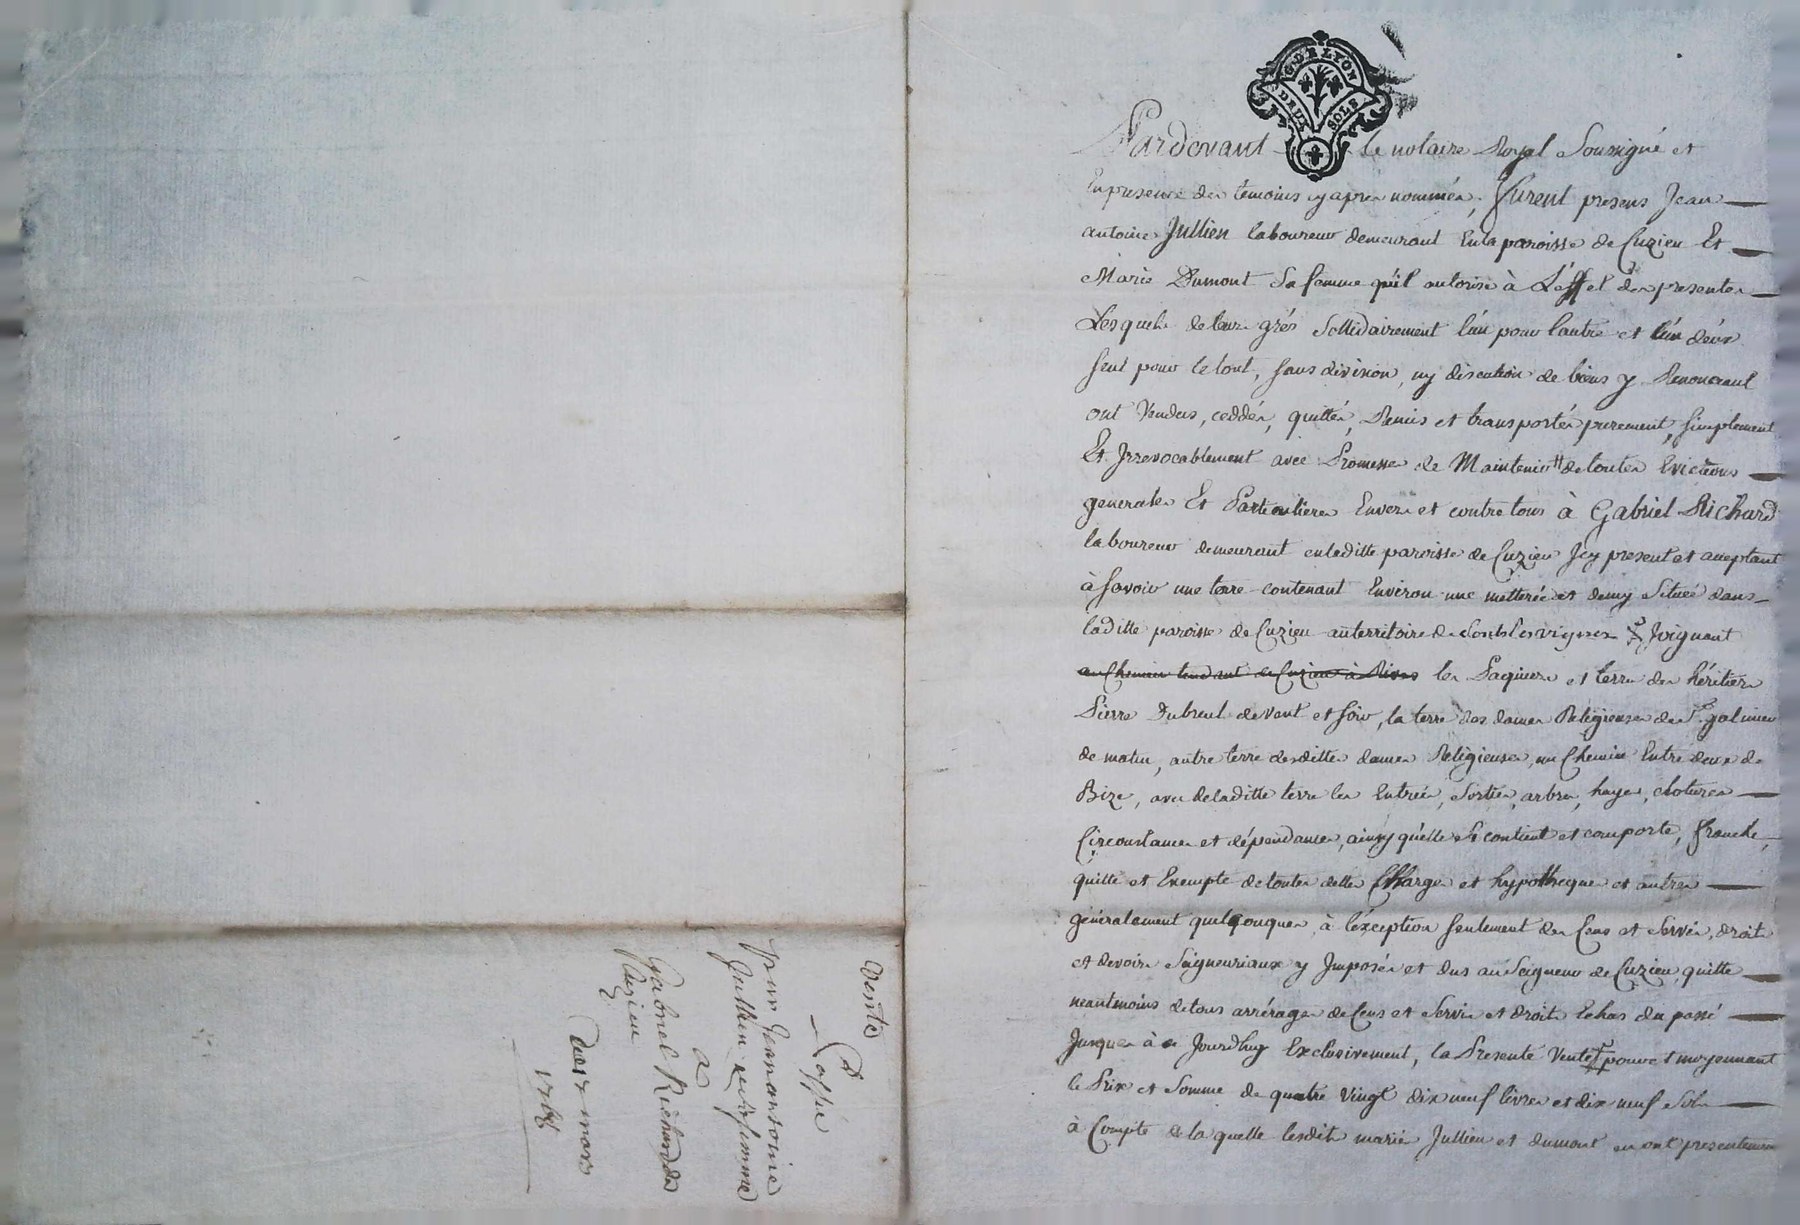 G. DE LYON
DEUX SOLS
Pardevant le notaire Royal Soussigné et
En presence des temoins cy apres nommés, furent presens Jean
antoine Jullien laboureur demeurant En la paroisse de Cuzieu Et
Marie Dumont Sa femme qu'il autorise à L'effet des presentes
Lesquels de leurs grés Sollidairement l'un pour l'autre et l'un d'eux
seul pour le tout, sans division, ny discution de biens y Renonceant
ont Vendus, ceddés, quittés, Remis et transportés purement, simplement
Et Irrevocablement avec Promesse de Maintenir # de toutes Evictions
generales Et Particulieres Envers et contre tous à Gabriel Richard
laboureur demeurant en laditte paroisse de Cuzieu Icy present et acceptant
à savoir une terre contenant Environ une metterée et demy Située dans
laditte paroisse de Cuzieu au territoire de Soubs Les vignes Joignant
au Chemin tendant de Cuzieu à Rivas les Paquiers et terre des héritiers
Pierre Dubreul de vent et soir, la terre des dames Religieuses de St. galmier
de matin, autre terre desdittes dames Religieuses, un Chemin Entre deux de
Bize, avec de laditte terre les Entrées, Sorties, arbres, hayes, clotures
Circonstances et dépendances, ainsy qu'elle se contient et comporte, franche,
quitte et Exempte de toutes dettes Charges et hypotheques et autres
généralement quelconques, à l'éxception seulement des Cens et Servis, droits
et devoirs Seigneuriaux y Imposés et dus au Seigneur de Cuzieu, quitte
neantmoins de tous arrérages de Cens et Servis et droits Echus du passé
Jusques à ce Jourd'huy Exclusivement, la Presente Vente pour et moyennant
le Prix et Somme de quatre Vingt dix neuf livres et dix neuf Sols
à Compte de la quelle lesdits mariés Jullien et dumont en ont presentement
Vente
passée
par Jean antoine
Jullien et sa femme
a
Gabriel Richard de
Cuzieu
mars